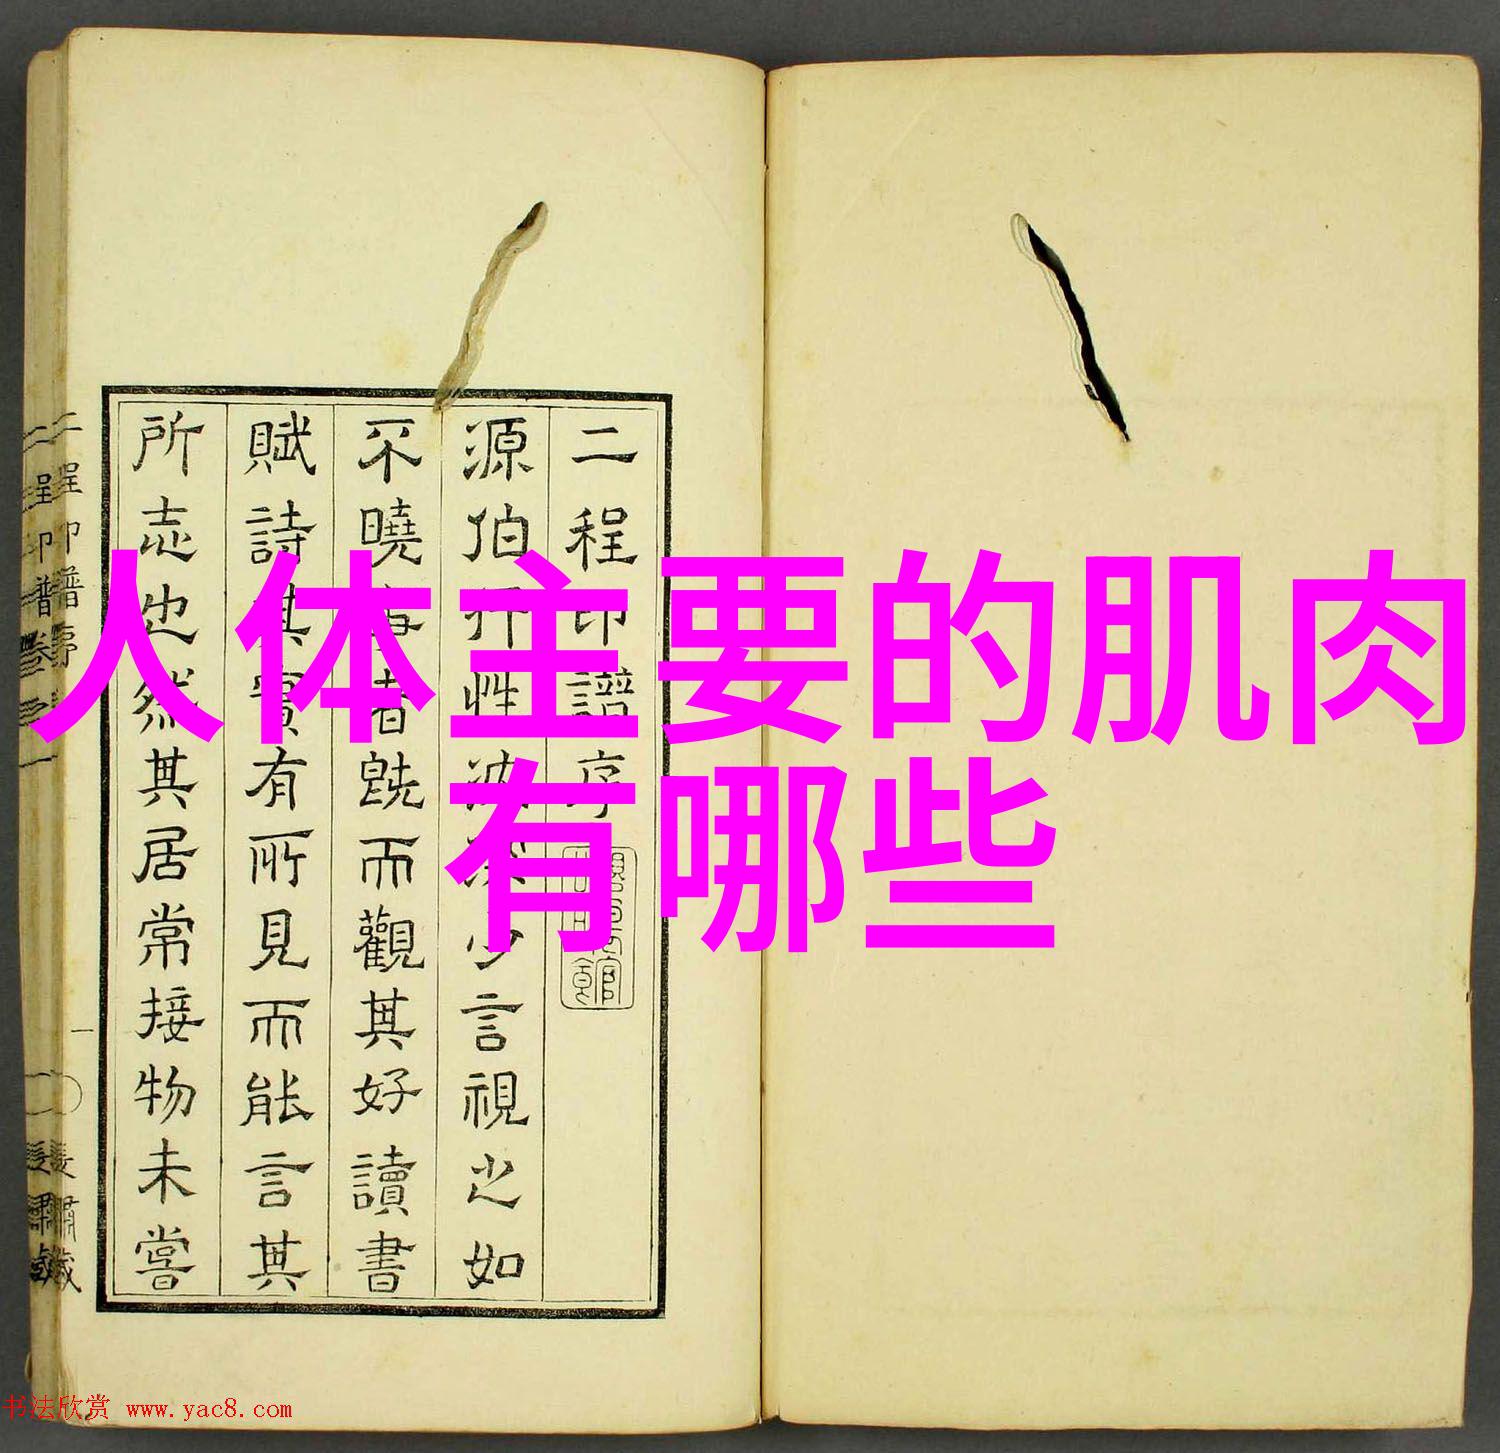 人体主要的肌肉
有哪些
二程印譜序
源伯抨性淡泊少言視之如
不曉事者旣而觀其好讀書
賦詩其實有所見而能言其
所志也然其居常接物未嘗
二程印譜序
一
二程印譜卷
一
书法欣赏 www.yac8.com